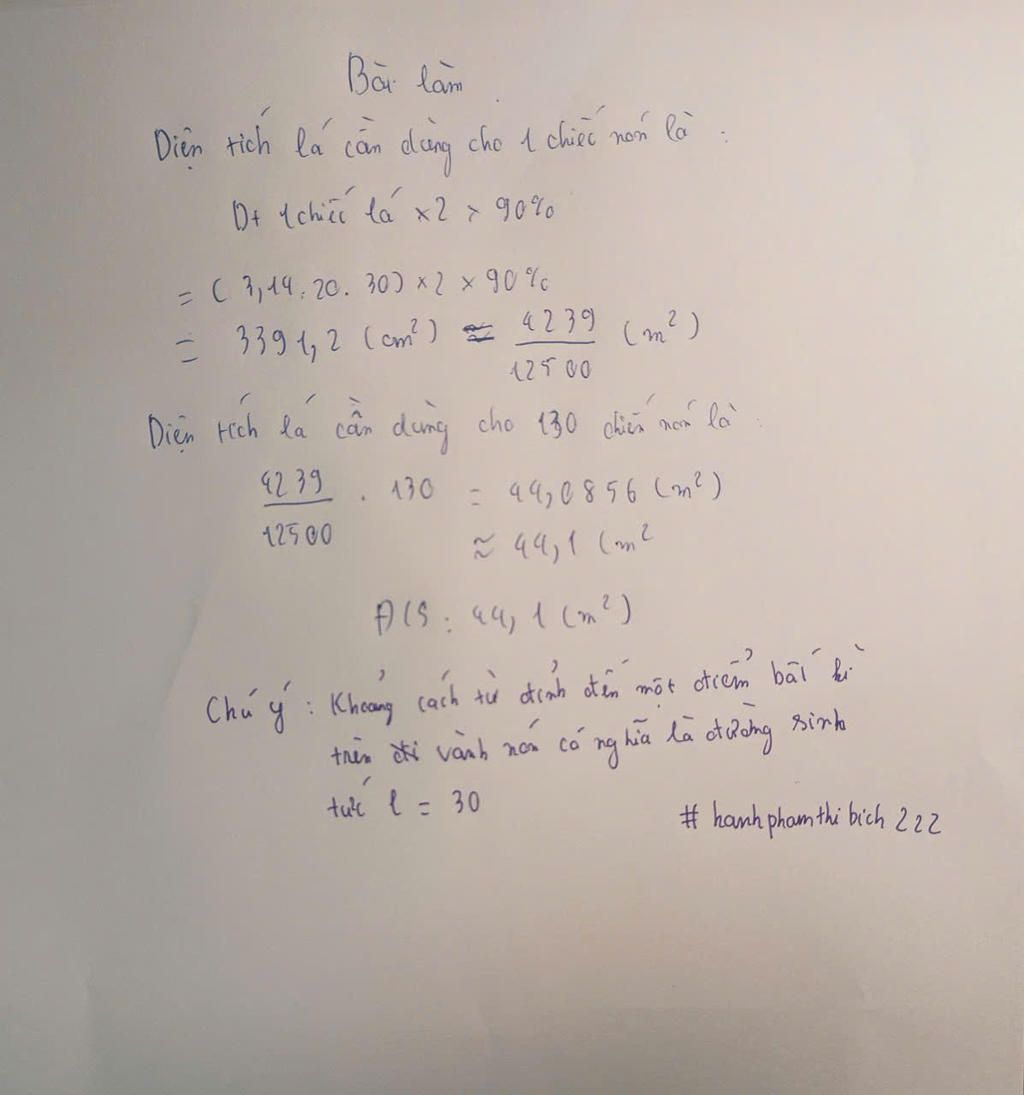 Bài làm
Diện tích lá cần dùng cho 1 chiếc nón là :
Dt 1 chiếc lá × 2 × 90%
= ( 3,14 . 20 . 30) × 2 × 90%
= 3391,2 (cm²) = 4239/12500 (m²)
Diện tích lá cần dùng cho 130 chiếc nón là :
4239/12500 . 130 = 44,0856 (m²)
≈ 44,1 (m²
Đ/S : 44,1 (m²)
Chú ý : Khoảng cách từ đỉnh đến một điểm bất kì
trên vành nón có nghĩa là đường sinh
tức l = 30
# hanhphamthibich222